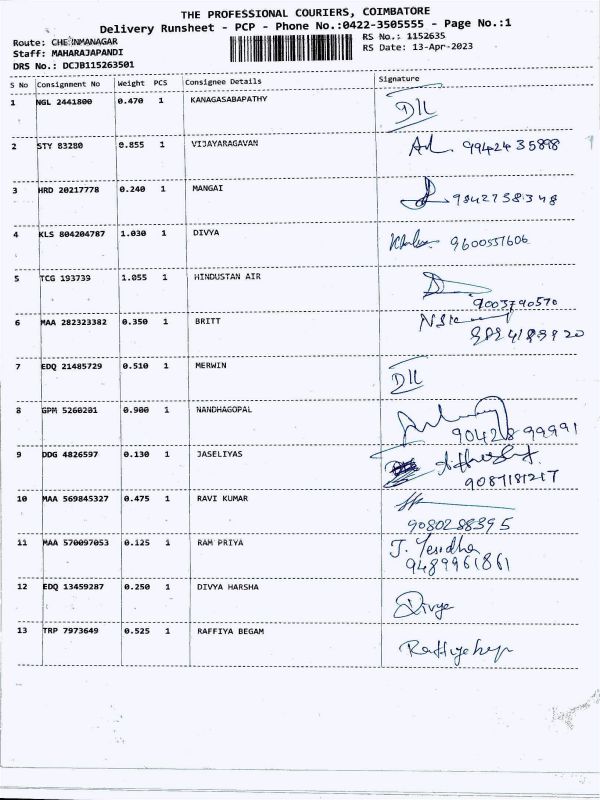 THE PROFESSIONAL COURIERS, COIMBATORE
Delivery Runsheet - PCP - Phone No.:0422-3505555 - Page No.:1
Route: CHEINMANAGAR
RS No.: 1152635
Staff: MAHARAJAPANDI
RS Date: 13-Apr-2023
DRS No.: DCJB115263501
S No Consignment No Weight PCS Consignee Details Signature
1 NGL 2441800 0.470 1 KANAGASABAPATHY DIL
2 STY 83280 0.855 1 VIJAYARAGAVAN 9942435898
3 HRD 20217778 0.240 1 MANGAI 9842758348
4 KLS 804204787 1.030 1 DIVYA 9600557606
5 TCG 193739 1.055 1 HINDUSTAN AIR
9003790570
6 MAA 282323382 0.350 1 BRITT
7 EDQ 21485729 0.510 1 MERWIN DIL
8 GPM 5260201 0.900 1 NANDHAGOPAL
90428 99991
9 DDG 4826597 0.130 1 JASELIYAS
9087181217
10 MAA 569845327 0.475 1 RAVI KUMAR
9080288395
11 MAA 570097053 0.125 1 RAM PRIYA J. Yesidha
9489961861
12 EDQ 13459287 0.250 1 DIVYA HARSHA Divya
13 TRP 7973649 0.525 1 RAFFIYA BEGAM